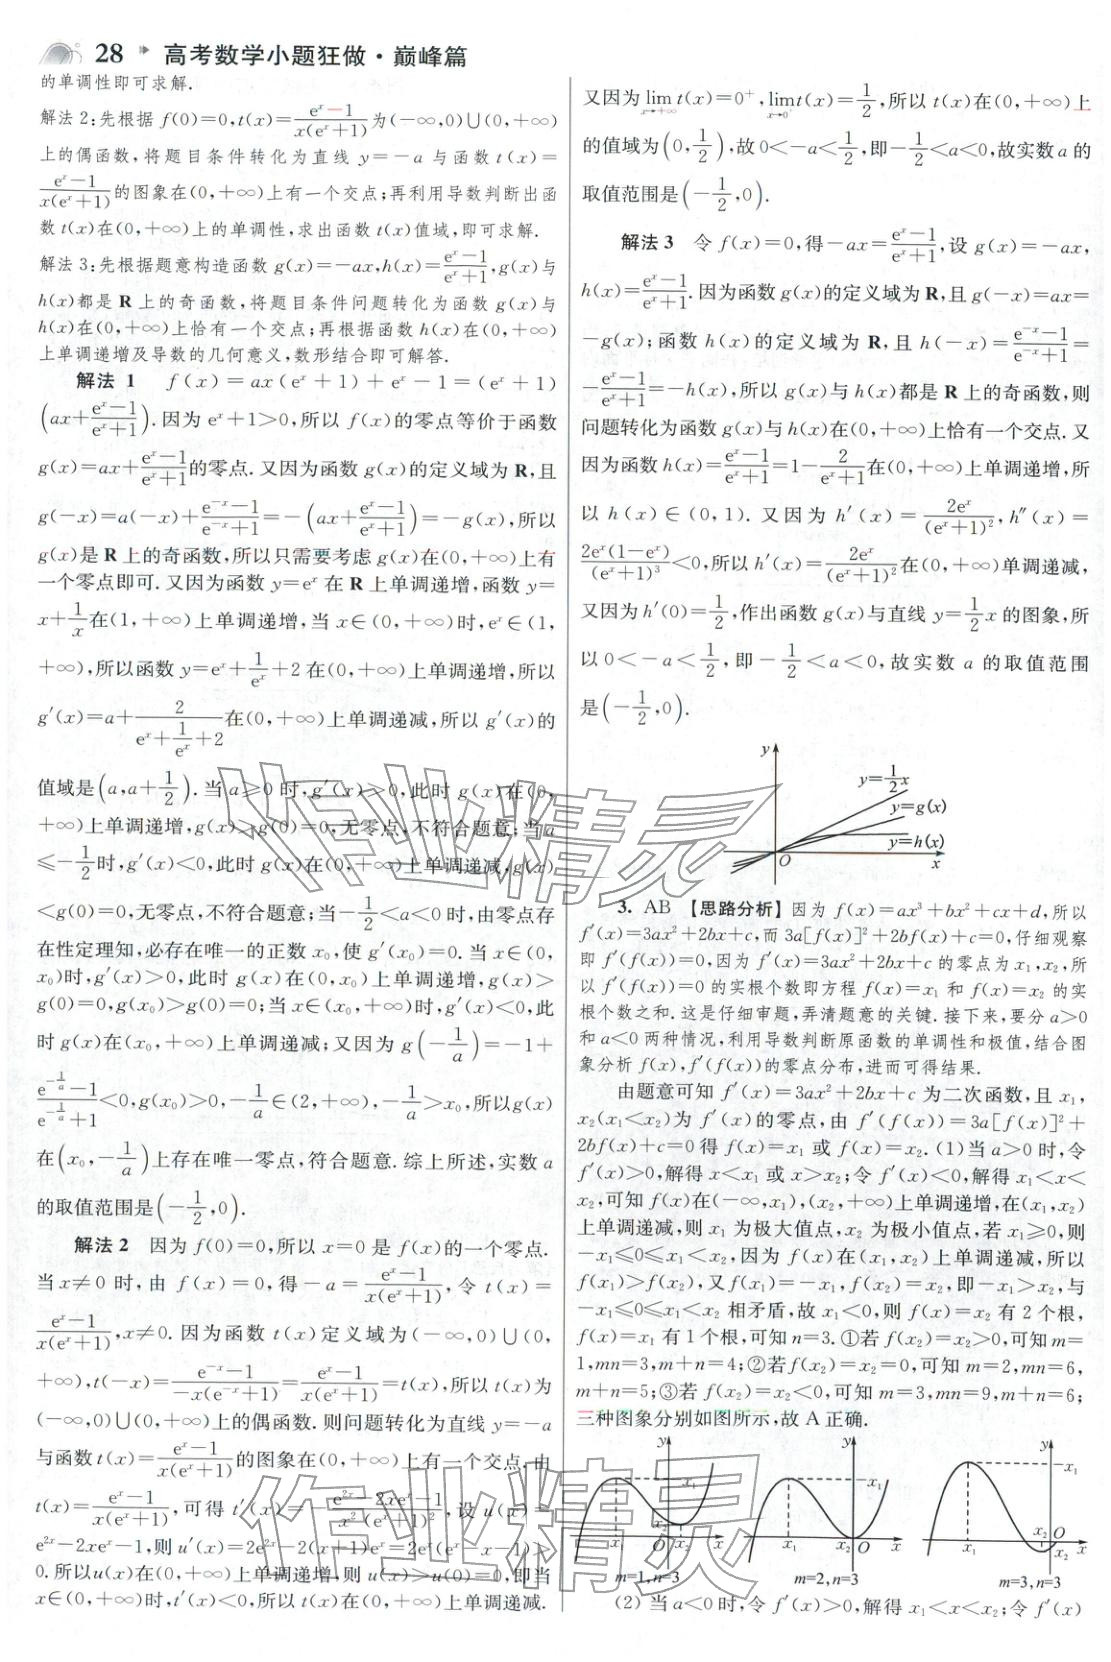 28 高考数学小题狂做·巅峰篇
的单调性即可求解.
解法2:先根据 f(0)=0,t(x)=(eˣ-1)/(x(eˣ+1))为(-∞,0)∪(0,+∞)
上的偶函数,将题目条件转化为直线 y=-a 与函数 t(x)=
(eˣ-1)/(x(eˣ+1))的图象在(0,+∞)上有一个交点;再利用导数判断出函
数 t(x)在(0,+∞)上的单调性,求出函数 t(x)值域,即可求解.
解法3:先根据题意构造函数 g(x)=-ax,h(x)=(eˣ-1)/(eˣ+1),g(x)与
h(x)都是 R 上的奇函数,将题目条件问题转化为函数 g(x)与
h(x)在(0,+∞)上恰有一个交点;再根据函数 h(x)在(0,+∞)
上单调递增及导数的几何意义,数形结合即可解答.
解法 1 f(x)=ax(eˣ+1)+eˣ-1=(eˣ+1)
(ax+(eˣ-1)/(eˣ+1)).因为 eˣ+1>0,所以 f(x)的零点等价于函数
g(x)=ax+(eˣ-1)/(eˣ+1)的零点.又因为函数 g(x)的定义域为 R,且
g(-x)=a(-x)+(e⁻ˣ-1)/(e⁻ˣ+1)=-(ax+(eˣ-1)/(eˣ+1))=-g(x),所以
g(x)是 R 上的奇函数,所以只需要考虑 g(x)在(0,+∞)上有
一个零点即可.又因为函数 y=eˣ 在 R 上单调递增,函数 y=
x+1/x在(1,+∞)上单调递增,当 x∈(0,+∞)时,eˣ∈(1,
+∞),所以函数 y=eˣ+1/eˣ+2 在(0,+∞)上单调递增,所以
g′(x)=a+2/(eˣ+1/eˣ+2)在(0,+∞)上单调递减,所以 g′(x)的
值域是(a,a+1/2).当 a≥0 时,g′(x)>0,此时 g(x)在(0,
+∞)上单调递增,g(x)>g(0)=0,无零点,不符合题意;当 a
≤-1/2时,g′(x)<0,此时 g(x)在(0,+∞)上单调递减,g(x)
<g(0)=0,无零点,不符合题意;当-1/2<a<0 时,由零点存
在性定理知,必存在唯一的正数 x₀,使 g′(x₀)=0.当 x∈(0,
x₀)时,g′(x)>0,此时 g(x)在(0,x₀)上单调递增,g(x)>
g(0)=0,g(x₀)>g(0)=0;当 x∈(x₀,+∞)时,g′(x)<0,此
时 g(x)在(x₀,+∞)上单调递减;又因为 g(-1/a)=-1+
(e^(-1/a)-1)/(e^(-1/a)+1)<0,g(x₀)>0,-1/a∈(2,+∞),-1/a>x₀,所以g(x)
在(x₀,-1/a)上存在唯一零点,符合题意.综上所述,实数 a
的取值范围是(-1/2,0).
解法 2 因为 f(0)=0,所以 x=0 是 f(x)的一个零点.
当 x≠0 时,由 f(x)=0,得-a=(eˣ-1)/(x(eˣ+1)),令 t(x)=
(eˣ-1)/(x(eˣ+1)),x≠0.因为函数 t(x)定义域为(-∞,0)∪(0,
+∞),t(-x)=(e⁻ˣ-1)/(-x(e⁻ˣ+1))=(eˣ-1)/(x(eˣ+1))=t(x),所以 t(x)为
(-∞,0)∪(0,+∞)上的偶函数.则问题转化为直线 y=-a
与函数 t(x)=(eˣ-1)/(x(eˣ+1))的图象在(0,+∞)上有一个交点.由
t(x)=(eˣ-1)/(x(eˣ+1)),可得 t′(x)=-(e²ˣ-2xeˣ-1)/(x²(eˣ+1)²),设 u(x)=
e²ˣ-2xeˣ-1,则 u′(x)=2e²ˣ-2(x+1)eˣ=2eˣ(eˣ-x-1)>
0.所以u(x)在(0,+∞)上单调递增,则 u(x)>u(0)=0,即当
x∈(0,+∞)时,t′(x)<0,所以 t(x)在(0,+∞)上单调递减.
又因为lim(x→+∞) t(x)=0⁺,lim(x→0) t(x)=1/2,所以 t(x)在(0,+∞)上
的值域为(0,1/2),故 0<-a<1/2,即-1/2<a<0,故实数 a 的
取值范围是(-1/2,0).
解法 3 令 f(x)=0,得-ax=(eˣ-1)/(eˣ+1),设 g(x)=-ax,
h(x)=(eˣ-1)/(eˣ+1).因为函数 g(x)的定义域为 R,且 g(-x)=ax=
-g(x);函数 h(x)的定义域为 R,且 h(-x)=(e⁻ˣ-1)/(e⁻ˣ+1)=
-(eˣ-1)/(eˣ+1)=-h(x),所以 g(x)与 h(x)都是 R 上的奇函数,则
问题转化为函数 g(x)与 h(x)在(0,+∞)上恰有一个交点.又
因为函数 h(x)=(eˣ-1)/(eˣ+1)=1-2/(eˣ+1)在(0,+∞)上单调递增,所
以 h(x)∈(0,1).又因为 h′(x)=2eˣ/(eˣ+1)²,h″(x)=
2eˣ(1-eˣ)/(eˣ+1)³<0,所以 h′(x)=2eˣ/(eˣ+1)²在(0,+∞)单调递减,
又因为 h′(0)=1/2,作出函数 g(x)与直线 y=1/2x 的图象,所
以 0<-a<1/2,即-1/2<a<0,故实数 a 的取值范围
是(-1/2,0).
y
y=1/2x
y=g(x)
y=h(x)
O x
3. AB 【思路分析】因为 f(x)=ax³+bx²+cx+d,所以
f′(x)=3ax²+2bx+c,而 3a[f(x)]²+2bf(x)+c=0,仔细观察
即 f′(f(x))=0,因为 f′(x)=3ax²+2bx+c 的零点为 x₁,x₂,所
以 f′(f(x))=0 的实根个数即方程 f(x)=x₁ 和 f(x)=x₂ 的实
根个数之和.这是仔细审题,弄清题意的关键.接下来,要分 a>0
和 a<0 两种情况,利用导数判断原函数的单调性和极值,结合图
象分析 f(x),f′(f(x))的零点分布,进而可得结果.
由题意可知 f′(x)=3ax²+2bx+c 为二次函数,且 x₁,
x₂(x₁<x₂)为 f′(x)的零点,由 f′(f(x))=3a[f(x)]²+
2bf(x)+c=0 得 f(x)=x₁ 或 f(x)=x₂.(1)当 a>0 时,令
f′(x)>0,解得 x<x₁ 或 x>x₂;令 f′(x)<0,解得 x₁<x<
x₂,可知 f(x)在(-∞,x₁),(x₂,+∞)上单调递增,在(x₁,x₂)
上单调递减,则 x₁ 为极大值点,x₂ 为极小值点,若 x₁≥0,则
-x₁≤0≤x₁<x₂,因为 f(x)在(x₁,x₂)上单调递减,所以
f(x₁)>f(x₂),又 f(x₁)=-x₁,f(x₂)=x₂,即-x₁>x₂,与
-x₁≤0≤x₁<x₂ 相矛盾,故 x₁<0,则 f(x)=x₂ 有 2 个根,
f(x)=x₁ 有 1 个根,可知 n=3.①若 f(x₂)=x₂>0,可知 m=
1,mn=3,m+n=4;②若 f(x₂)=x₂=0,可知 m=2,mn=6,
m+n=5;③若 f(x₂)=x₂<0,可知 m=3,mn=9,m+n=6;
三种图象分别如图所示,故 A 正确.
y -x₁ x₂ x₁ O x₂ x
m=1,n=3
y -x₁ x₁ O x
m=2,n=3
y -x₁ x₂ O x₁ x₂ x
m=3,n=3
(2)当 a<0 时,令 f′(x)>0,解得 x₁<x<x₂;令 f′(x)
作业精灵
作业精灵